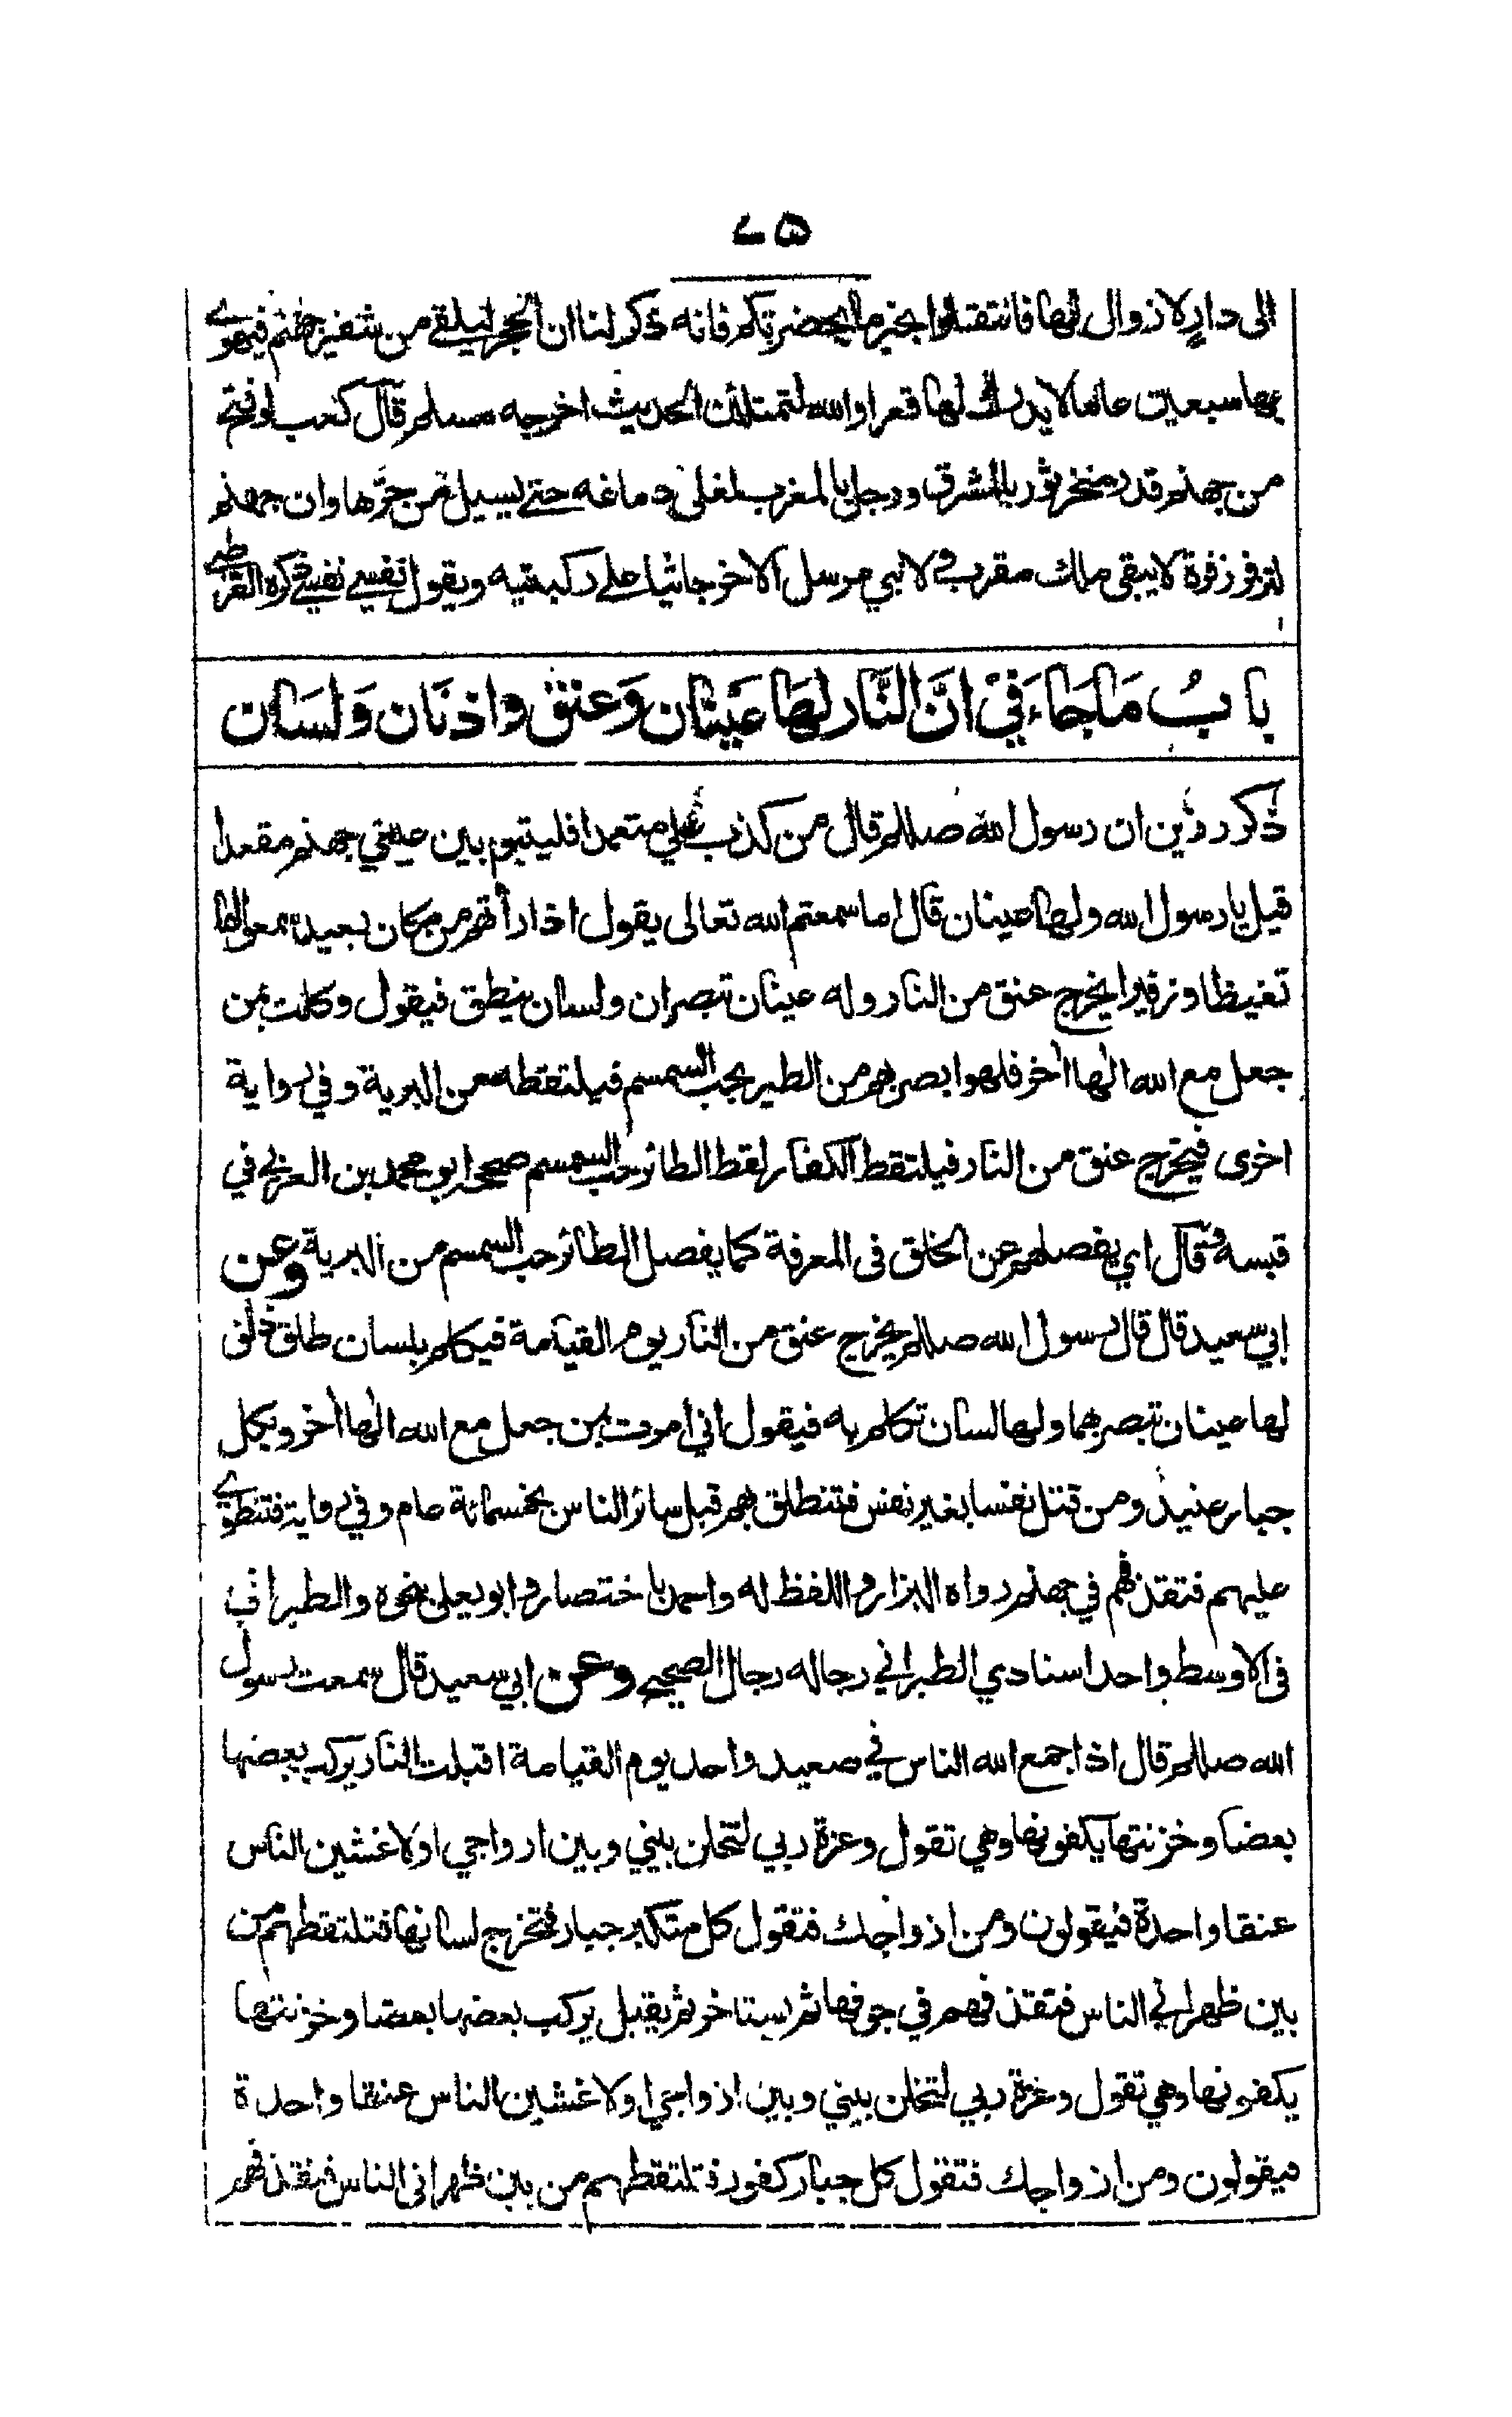 ٧٥
الى دار لا زوال لها فانتقلوا بخير ما بحضرتكم فانه ذكر لنا ان الحجر ليلقى من شفير جهنم فيهوي
بها سبعين عاما لا يدرك لها قعرا والله لتمتلئن الحديث اخرجه مسلم قال كعب لو فتح
من جهنم قدر منخر ثور بالمشرق ورجل بالمغرب لغلى دماغه حتى يسيل من حرها وان جهنم
لتزفر زفرة لا يبقى ملك مقرب ولا نبي مرسل الا خر جاثيا على ركبتيه ويقول نفسي نفسي ذكره القرطبي
باب مَا جَاءَ فِي انَّ النَّار لهَا عَينَان وَعنق واذنَان وَلسَان
ذكر رزين ان رسول الله صللم قال من كذب علي متعمدا فليتبوء بين عيني جهنم مقعدا
قيل يا رسول الله ولها عينان قال اما سمعتم الله تعالى يقول اذا رأتهم من مكان بعيد سمعوا لها
تغيظا وزفيرا يخرج عنق من النار وله عينان تبصران ولسان ينطق فيقول وكلت بمن
جعل مع الله الٰها اٰخر فلهو ابصر بهم من الطير بحب السمسم فيلتقطه من البرية وفي رواية
اخرى فيخرج عنق من النار فيلتقط الكفار لقط الطائر حب السمسم صححه ابو محمد بن العربي في
قبسه وقال اي يفصلهم عن الخلق في المعرفة كما يفصل الطائر حب السمسم من البرية وعن
ابي سعيد قال قال رسول الله صللم يخرج عنق من النار يوم القيامة فيكلم بلسان طلق ذلق
لها عينان تبصر بهما ولها لسان تكلم به فيقول اني امرت بمن جعل مع الله الٰها اٰخر وبكل
جبار عنيد ومن قتل نفسا بغير نفس فتنطلق بهم قبل سائر الناس بخمسمائة عام وفي رواية فتنطوي
عليهم فتقذفهم في جهنم رواه البزار واللفظ له واحمد باختصار وابو يعلى بنحوه والطبراني
في الاوسط واحد اسنادي الطبراني رجاله رجال الصحيح وعن ابي سعيد قال سمعت رسول
الله صللم قال اذا جمع الله الناس في صعيد واحد يوم القيامة اقبلت النار يركب بعضها
بعضا وخزنتها يكفونها وهي تقول وعزة ربي لتخلن بيني وبين ازواجي او لاغشين الناس
عنقا واحدة فيقولون ومن ازواجك فتقول كل متكبر جبار فتخرج لسانها فتلتقطهم من
بين ظهراني الناس فتقذفهم في جوفها ثم يستاخر ثم يقبل يركب بعضها بعضا وخزنتها
يكفونها وهي تقول وعزة ربي لتخلن بيني وبين ازواجي او لاغشين الناس عنقا واحدة
فيقولون ومن ازواجك فتقول كل جبار كفور فتلتقطهم من بين ظهراني الناس فتقذفهم